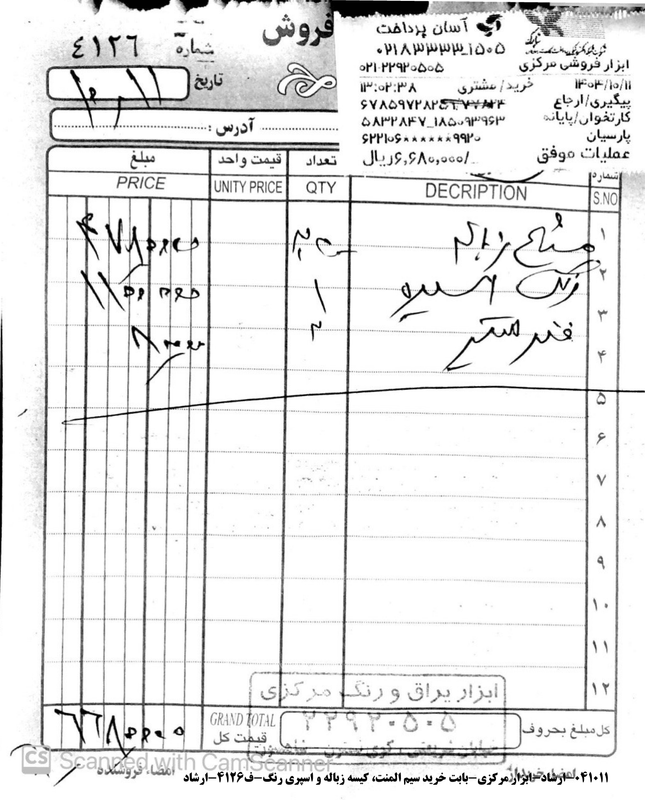 فروش
شماره ۴۱۲۶
تاریخ ۱۰/۱۱
آدرس :
آسان پرداخت
۰۲۱۸۳۳۳۳_۱۵۰۵
ابزار فروشی مرکزی
۰۲۱-۲۲۹۲۰۵۰۵
۱۴۰۴/۱۰/۱۱ خرید/مشتری ۱۳:۰۲:۳۸
پیگیری/ارجاع
کارتخوان/پایانه ۵۸۳۲۸۴۷_۱۸۵۰۹۳۹۶۳
پارسیان ۶۲۲۱۰۶******۹۹۲۰
عملیات موفق ۶,۶۸۰,۰۰۰/ریال
شماره تعداد قیمت واحد مبلغ
S.NO DECRIPTION QTY UNITY PRICE PRICE
۱ زباله ۴۷۸۰۰۰۰
۲ رنگ اسپری ۱ ۱۱۰۰۰۰۰
۳ ۲ ۸۰۰۰۰۰
۴
۵
۶
۷
۸
۹
۱۰
۱۱
۱۲
ابزار یراق و رنگ مرکزی
۲۲۹۲۰۵۰۵
کل مبلغ بحروف GRAND TOTAL ۶۶۸۰۰۰۰
قیمت کل
امضاء فروشنده
CS Scanned with CamScanner
۰۴۱۰۱۱-ارشاد-ابزار مرکزی-بابت خرید سیم المنت، کیسه زباله و اسپری رنگ-ف۴۱۲۶-ارشاد